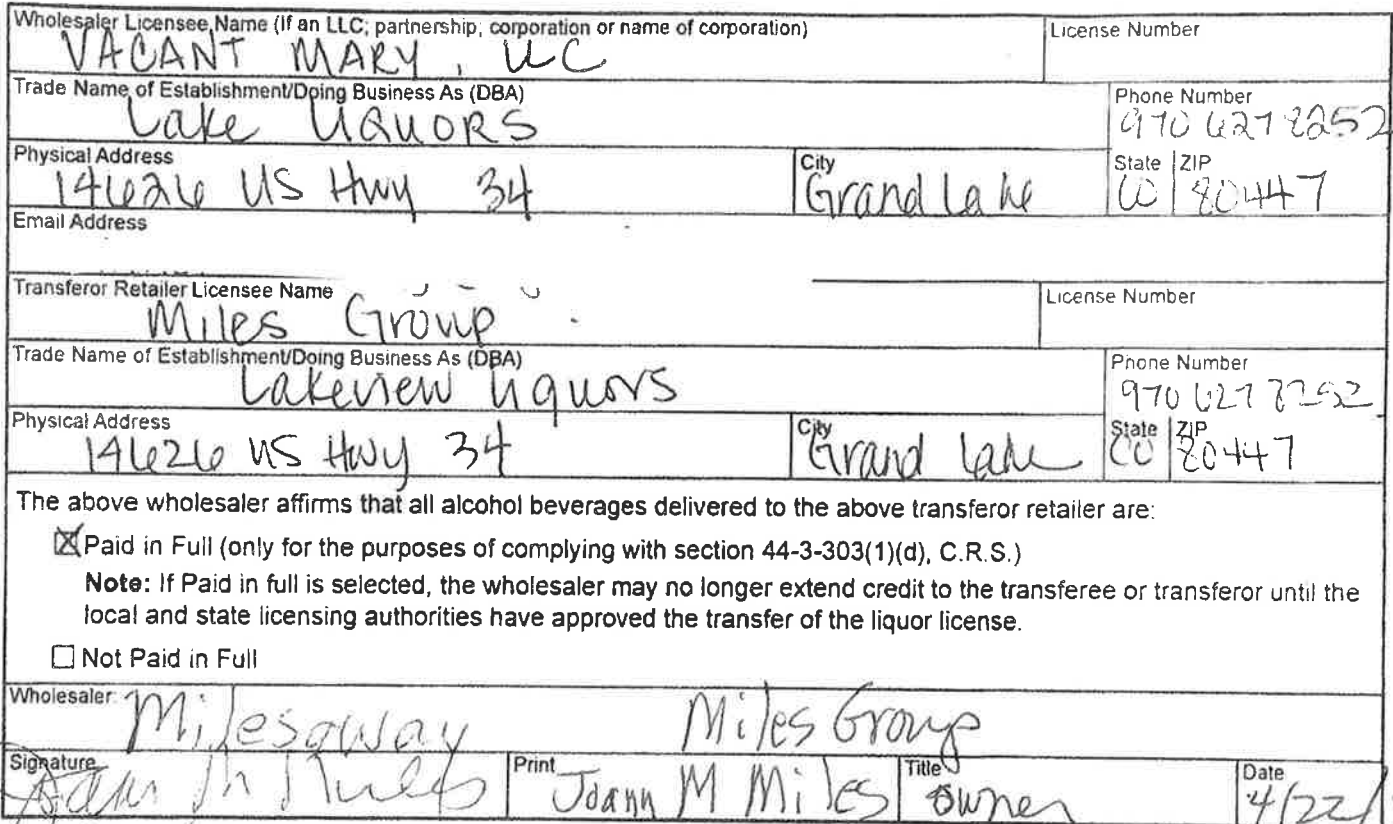 Wholesaler Licensee Name (If an LLC; partnership; corporation or name of corporation) License Number
VACANT MARY, LLC
Trade Name of Establishment/Doing Business As (DBA) Phone Number
Lake LIQUORS 970 627 8252
Physical Address City State ZIP
14626 US Hwy 34 Grand Lake CO 80447
Email Address
Transferor Retailer Licensee Name License Number
Miles Group
Trade Name of Establishment/Doing Business As (DBA) Phone Number
Lakeview liquors 970 627 8252
Physical Address City State ZIP
14626 US Hwy 34 Grand Lake CO 80447
The above wholesaler affirms that all alcohol beverages delivered to the above transferor retailer are:
☒ Paid in Full (only for the purposes of complying with section 44-3-303(1)(d), C.R.S.)
Note: If Paid in full is selected, the wholesaler may no longer extend credit to the transferee or transferor until the
local and state licensing authorities have approved the transfer of the liquor license.
☐ Not Paid in Full
Wholesaler: Milesaway Miles Group
Signature Print Title Date
Joann M Miles owner 4/22/